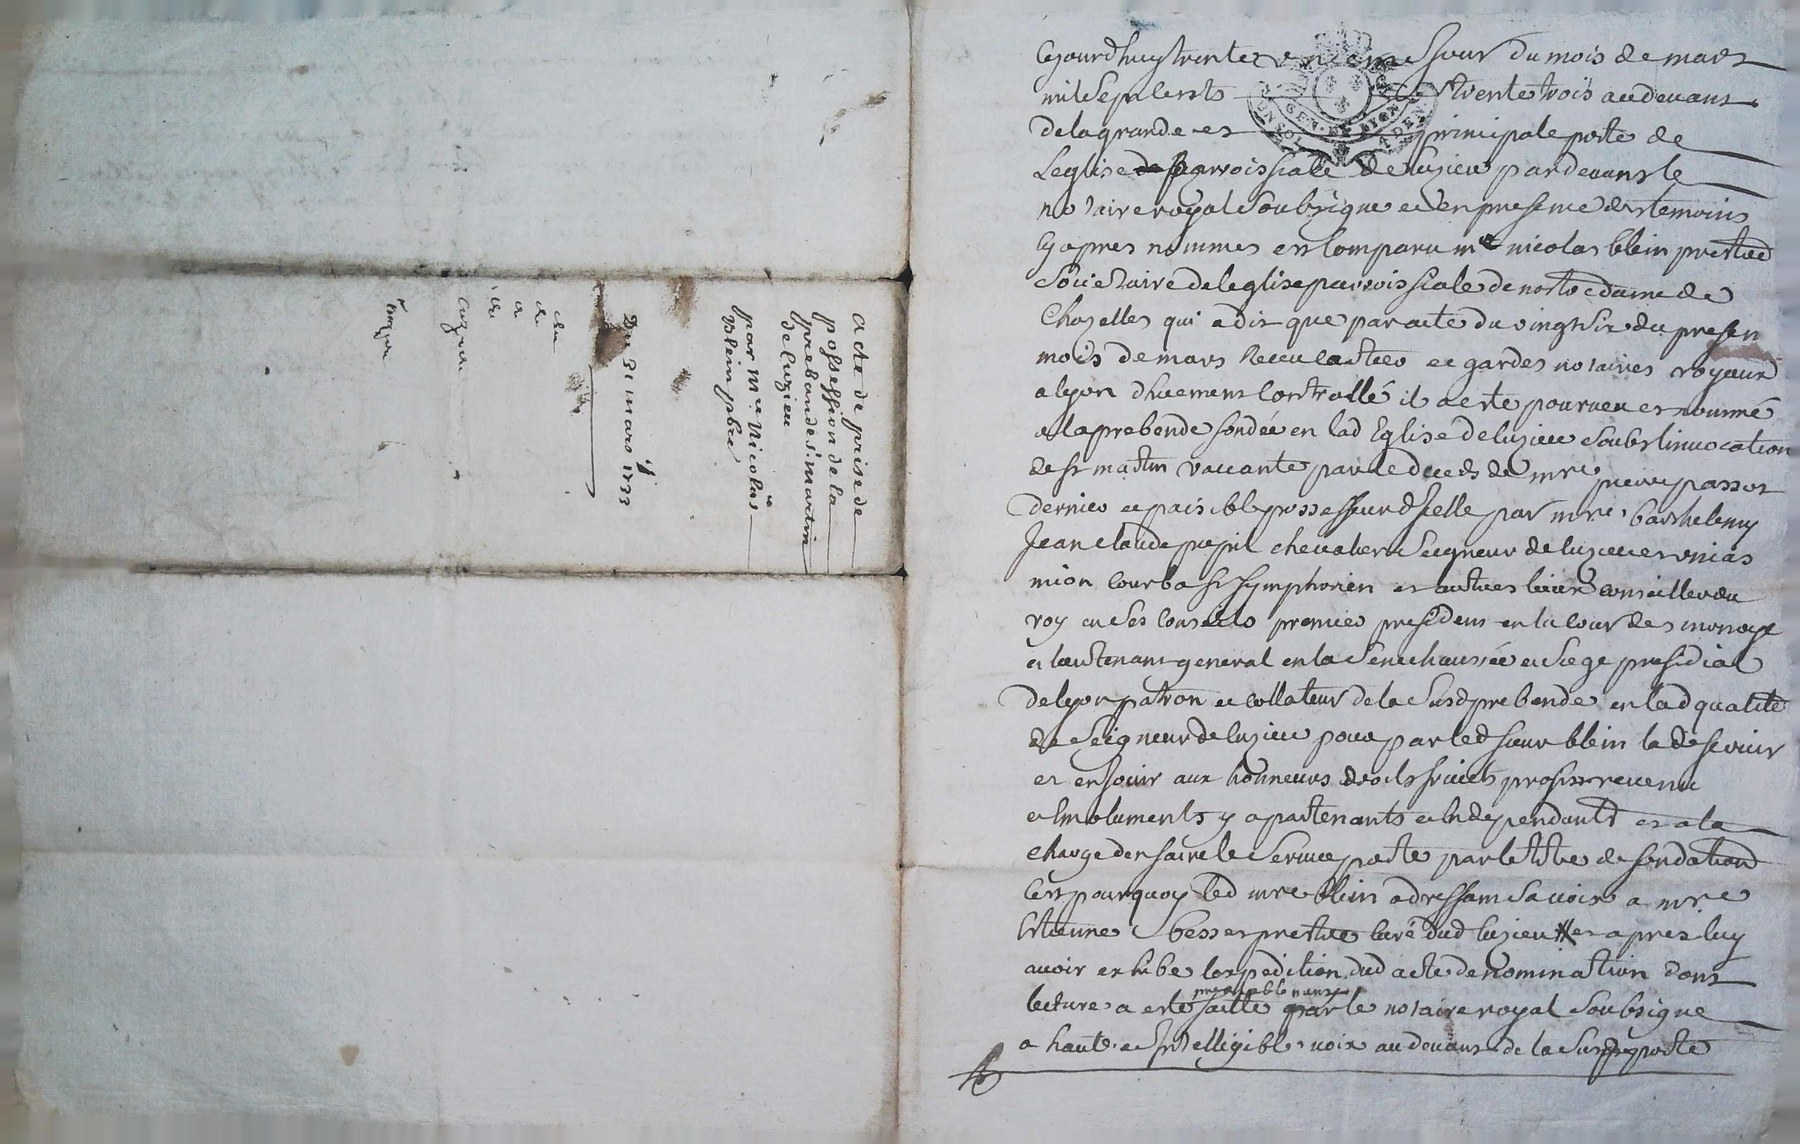 acte de prise de
possession de la
prebande st martin
de luzieu
par mre Nicolas
blein pbre
Du 31 mars 1733
Cejourdhuy trente unieme Jour du mois de mars
mil sept cents trente trois au devant
de la grande et principale porte de
Leglise parroissiale de luzieu pardevant le
notaire royal soubsigne et en presence des temoins
cy apres nommes est comparu mre nicolas blein prestre
societaire de leglise parroissiale de nostre dame de
Chazelles qui a dit que par acte du vingt six du presen
mois de mars Receu et gardes notaires royaux
a lyon dhuement controllé il a esté pourveu et nommé
a la prebende fondée en lad Eglise de luzieu soubs linvocation
de st martin vaccante par le deceds de mre pierre passot
dernier et paisible possesseur dicelle par mre barthelemy
Jean claude pupil chevalier Seigneur de luzieu et
mion courbas st symphorien et autres lieux conseiller du
roy en ses conseils premier president en la cour des monoye
et lieutenant general en la senechaussée et siege presidial
de lyon patron et collateur de la susd prebende en lad qualité
de Seigneur de luzieu pour par led sieur blein la deservir
et en Jouir aux honneurs droits fruits profits revenu
et Emoluments y apartenants et independants et a la
charge den faire le service porté par le titre de fondation
Cest pourquoy led mre blein adressant sa voix a mre
Estienne besset prestre curé dud luzieu et apres luy
avoir exhibe lexpedition dud acte de nomination dont
prealablement
lecture a esté faitte par le notaire royal soubsigne
a haute et Intelligible voix au devant de la susd porte